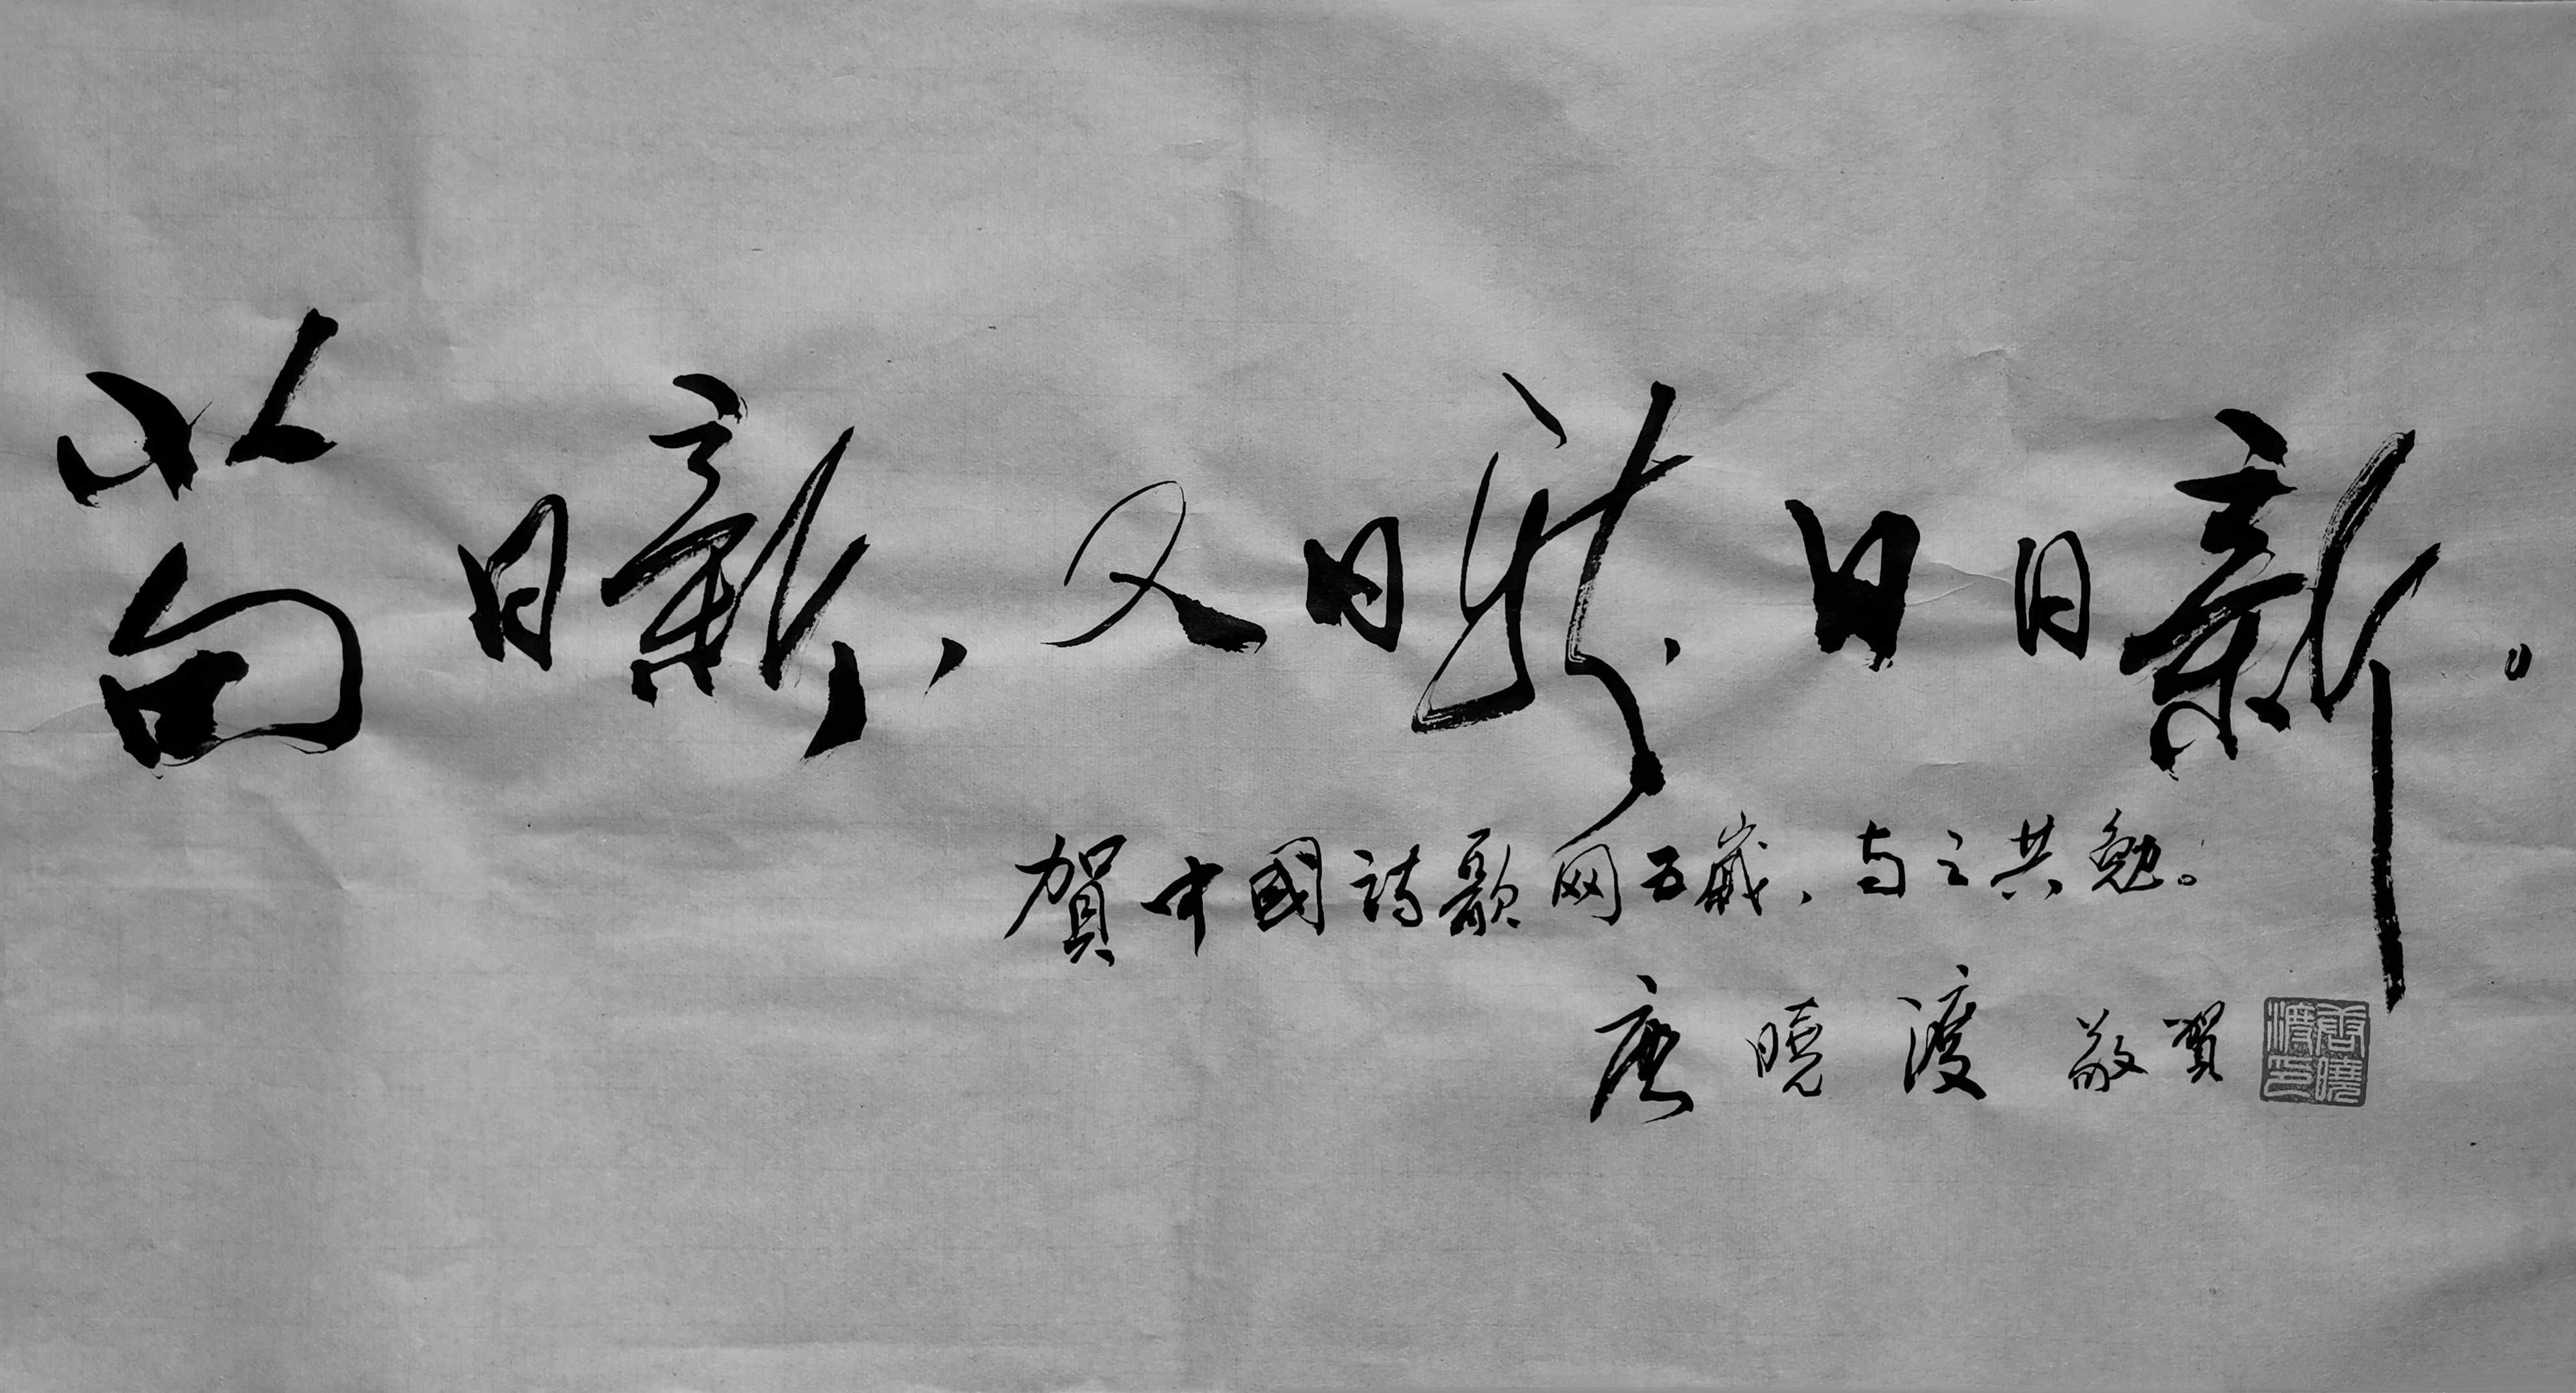 苟日新，又日新，日日新。
賀中國詩歌网五歲，与之共勉。
唐曉渡 敬賀
唐曉渡印